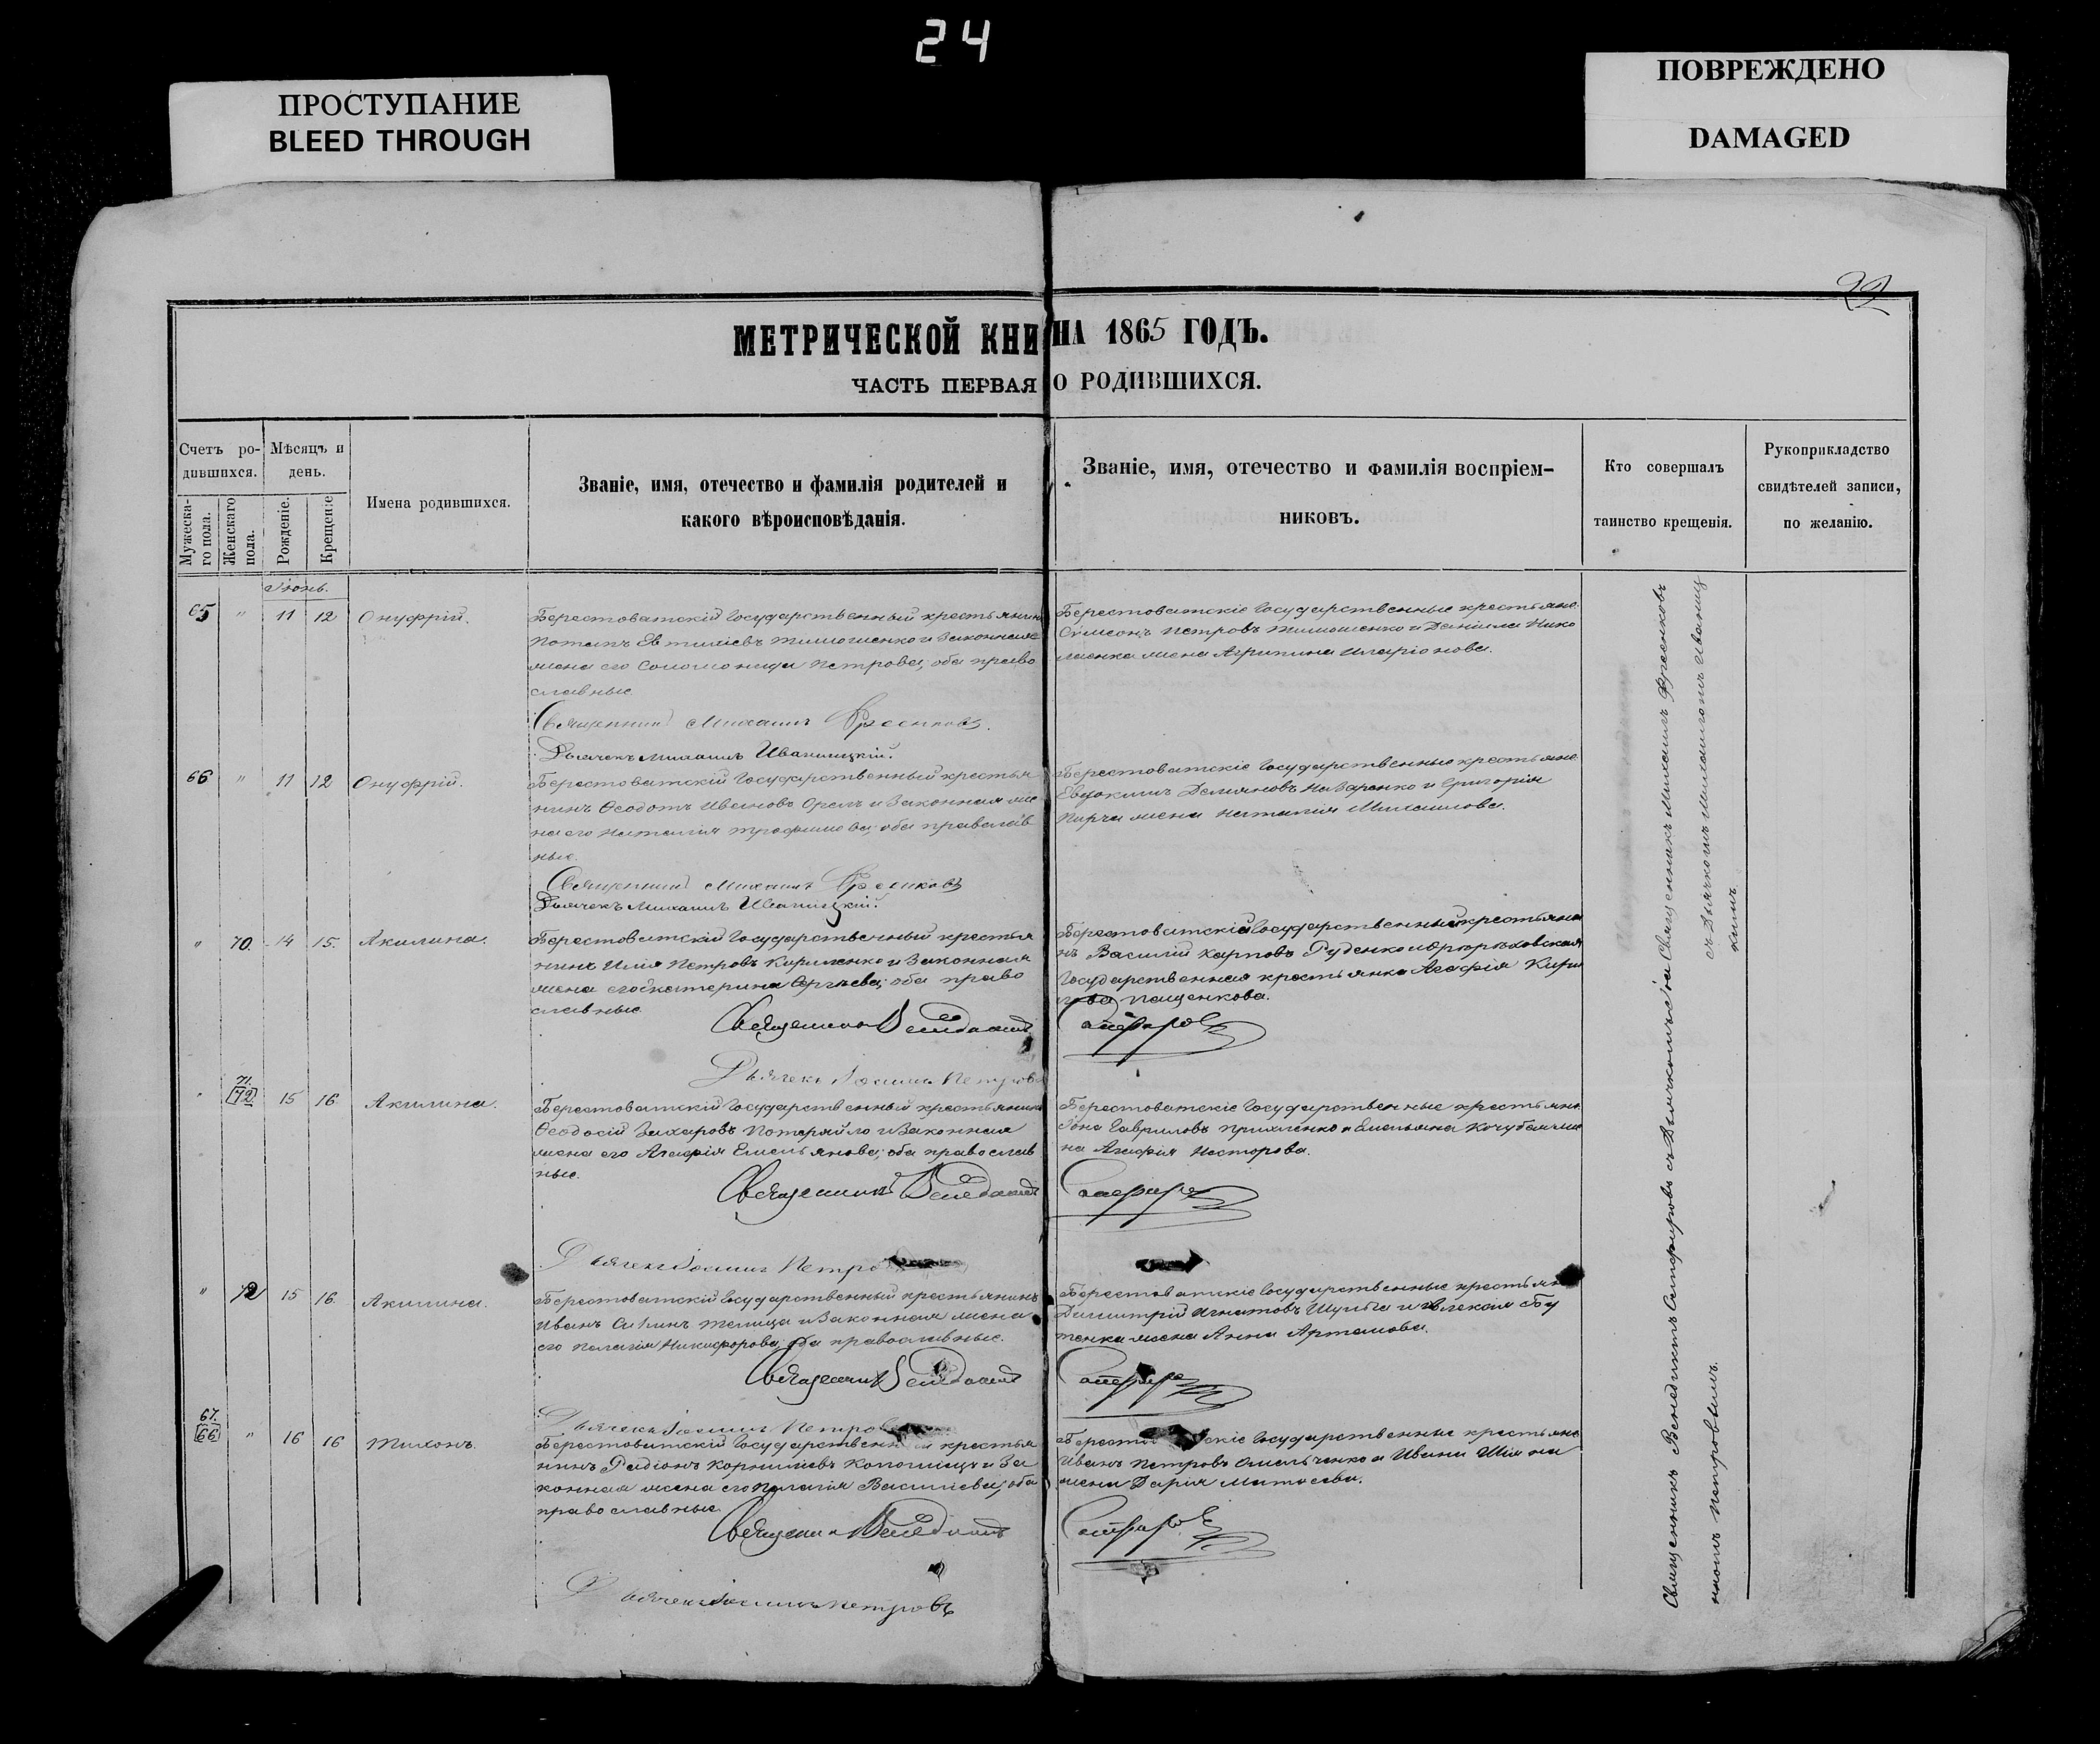 24
ПРОСТУПАНИЕ
BLEED THROUGH
ПОВРЕЖДЕНО
DAMAGED
МЕТРИЧЕСКОЙ КНИ НА 1865 ГОДЪ.
ЧАСТЬ ПЕРВАЯ О РОДИВШИХСЯ.
Счетъ ро-
дившихся.
Мужеска-
го пола.
Женскаго
пола.
Мѣсяцъ и
день.
Рожденіе.
Крещеніе
Имена родившихся.
Званіе, имя, отечество и фамилія родителей и
какого вѣроисповѣданія.
Званіе, имя, отечество и фамилія воспріем-
никовъ.
Кто совершалъ
таинство крещенія.
Рукоприкладство
свидѣтелей записи,
по желанію.
Іюнь.
65 " 11 12 Онуфрій.
Берестоватскій Государственный крестьянинъ
Потапъ Евтихіевъ Тимошенко и Законная
жена его Соломонида Петрова; оба право
славные.
Священникъ Михаилъ
Дьячекъ Михаилъ Иваницкій.
Берестоватскіе Государственные крестьяне
Симеонъ Петровъ Тимошенко и Даніила Нико
лаенка жена Агрипина Иларіонова.
66 " 11 12 Онуфрій.
Берестоватскій Государственный крестья
нинъ Ѳеодотъ Ивановъ Орелъ и Законная же
на его Наталія Трофимова; оба православ
ные.
Священникъ Михаилъ
Дьячекъ Михаилъ Иваницкій.
Берестоватскіе Государственные крестьяне
Евдокимъ Демяновъ Назаренко и Григорія
жена Наталія Михаилова.
" 70. 14 15. Акилина.
Берестоватскій Государственный крестья
нинъ Илія Петровъ Кириленко и Законная
жена его Екатерина Сергѣева; оба право
славные.
Священникъ Венедиктъ Сапфировъ
Дьячекъ Іоаннъ Петровъ
Берестоватскій Государственный крестьяни
нъ Василій Карповъ Руденко и
Государственная крестьянка Агафія Кирил
лова Пащенкова.
" 71. 72. 15 16. Акилина.
Берестоватскій Государственный крестьянинъ
Ѳеодосій Захаровъ Потеряйло и Законная
жена его Агафія Емельянова; оба православ
ные.
Священникъ Венедиктъ Сапфировъ
Дьячекъ Іоаннъ Петро
Берестоватскіе Государственные крестьяне
Іона Гавриловъ и Емельяна Кочубея же
на Агафія Несторова.
" 72 15 16. Акилина.
Берестоватскій Государственный крестьянинъ
Иванъ Телица и Законная жена
его Пелагія Никифорова; оба православные.
Священникъ Венедиктъ Сапфировъ
Дьячекъ Іоаннъ Петров
Берестоватскіе Государственные крестьяне
Димитрій Игнатовъ Шульга и
тенка жена Анна Артемова.
67. 66 " 16 16 Тихонъ.
Берестоватскій Государственный крестья
нинъ Радіонъ Корниліевъ Коломіецъ и За
конная жена его Пелагія Василіева; оба
православные.
Священникъ Венедиктъ Сапфировъ
Дьячекъ Іоаннъ Петровъ
Иванъ Петровъ Омельченко и Ивана Шія на
жена Дарія Матѳеева.
Священникъ Венедиктъ Сапфировъ съ Дьячкомъ Іоа
нномъ Петровымъ.
Священникъ Михаилъ
съ Дьячкомъ Михаиломъ Иваниц
кимъ.